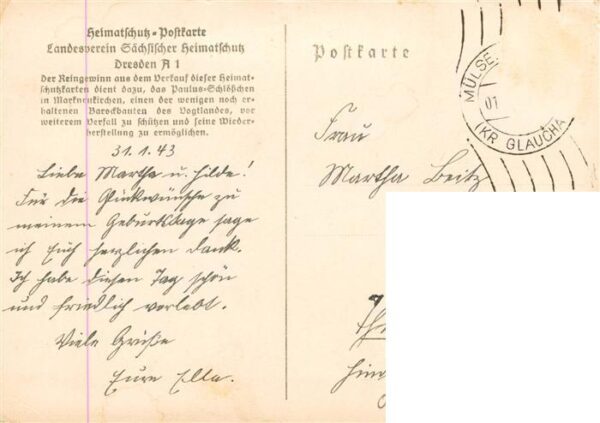 Heimatschutz-Postkarte
Landesverein Sächsischer Heimatschutz
Dresden A 1
Der Reingewinn aus dem Verkauf dieser Heimat-
schutzkarten dient dazu, das Paulus-Schlößchen
in Markneukirchen, einen der wenigen noch er-
haltenen Barockbauten des Vogtlandes, vor
weiterem Verfall zu schützen und seine Wieder-
herstellung zu ermöglichen.
31.1.43
Liebe Martha u. Hilde!
Für die Glückwünsche zu
meinem Geburtstage sage
ich Euch herzlichen Dank.
Ich habe diesen Tag schön
und friedlich verlebt.
Viele Grüße
Eure Ella.
Postkarte
MÜLSE
01
(KR GLAUCHA
Frau
Martha Beitz